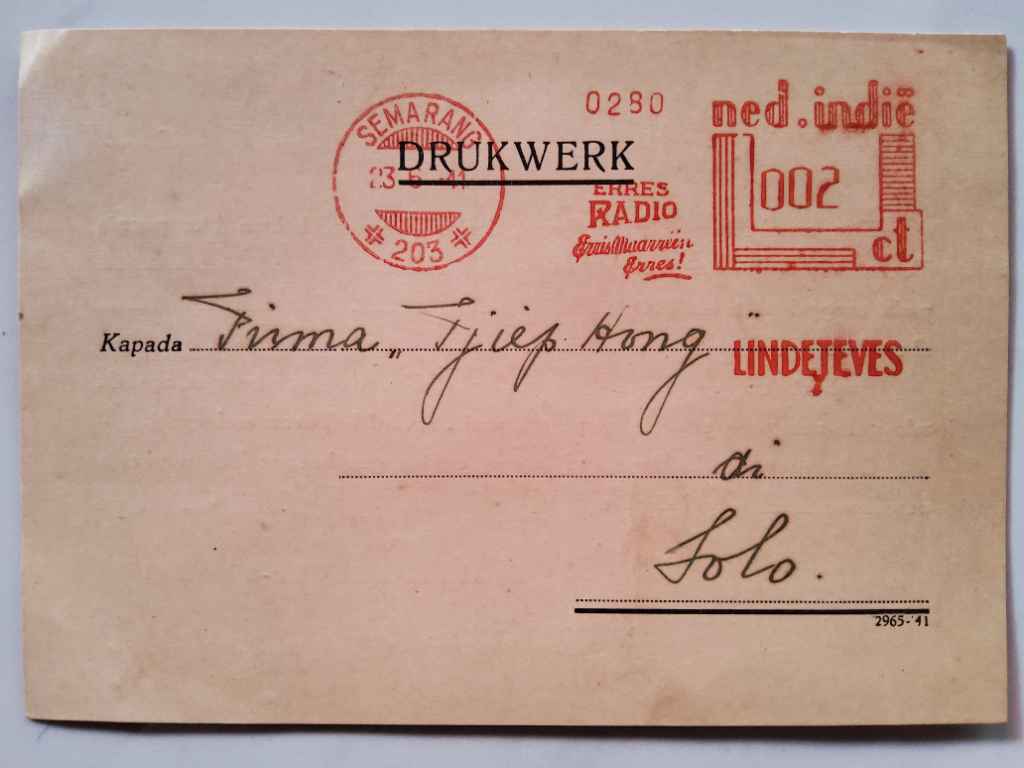 0280
ned. indië
SEMARANG
DRUKWERK
23 6 41
002
ERRES
RADIO
Erres!
ct
203
Kapada Firma „Tjiep Hong"
LINDETEVES
di
Solo.
2965-'41